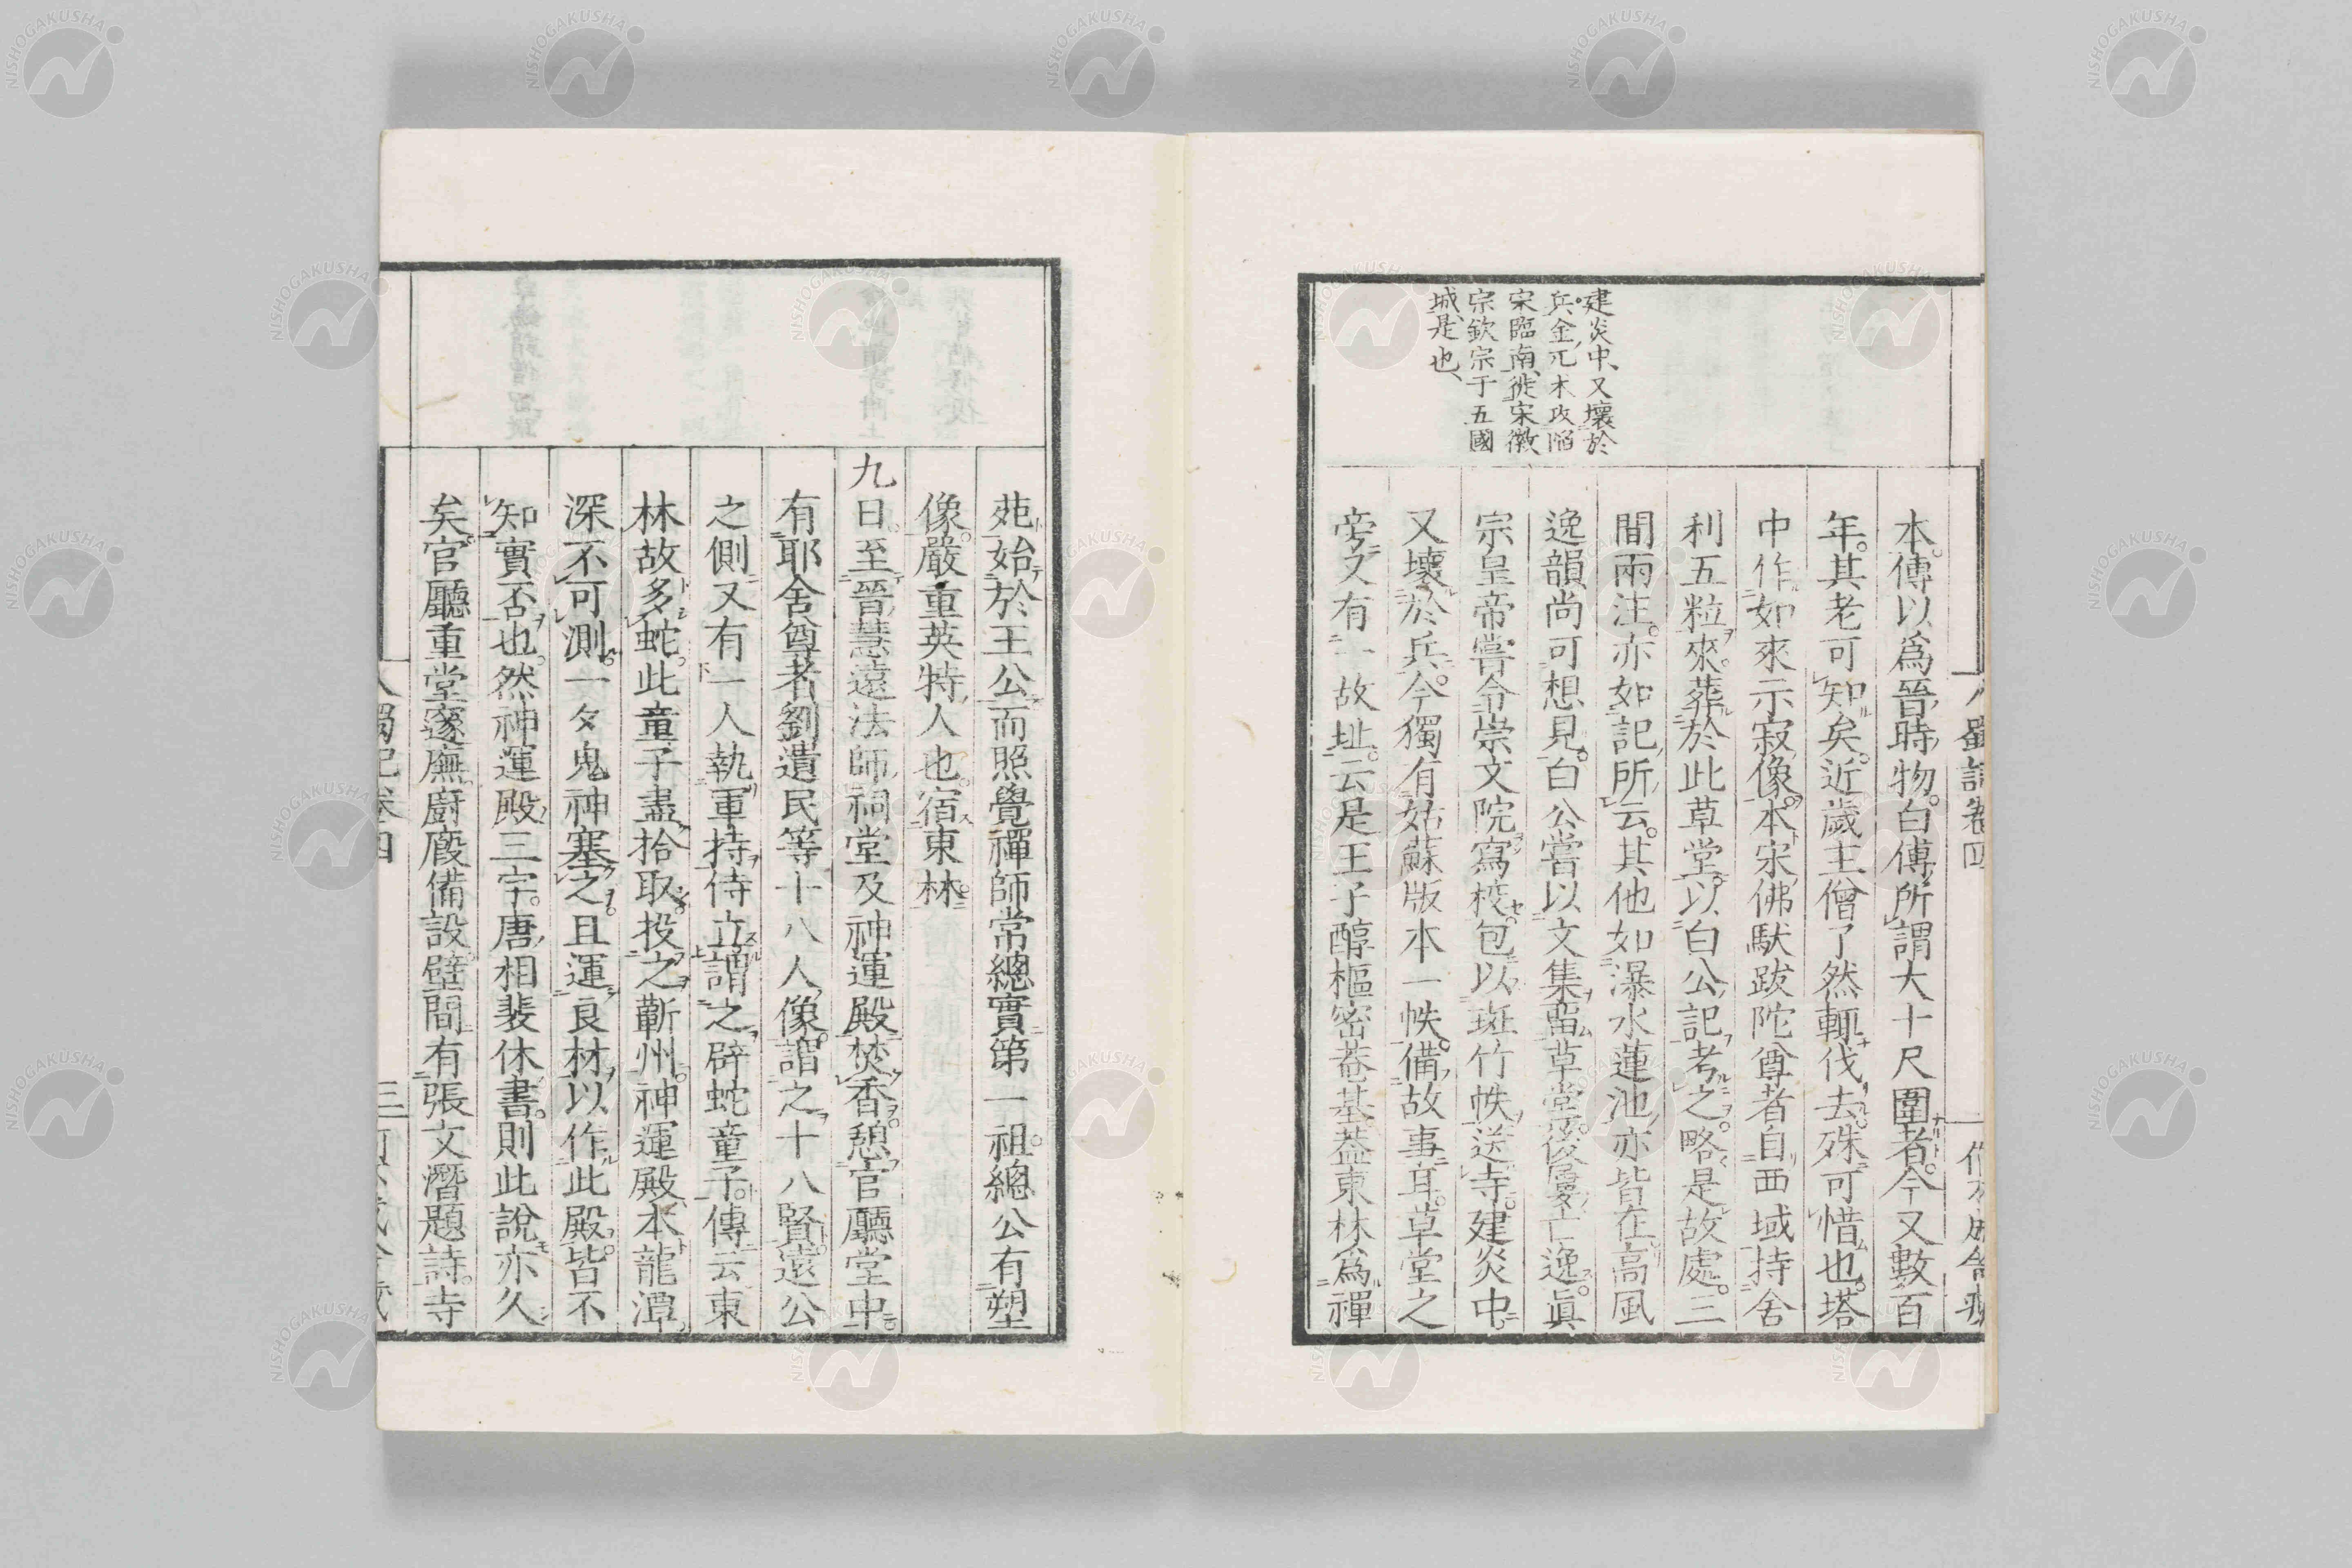 建炎中、又壞於
兵、金兀朮攻陷
宋臨南、徙宋徽
宗欽宗于五國
城、是也、
本。傳以爲晉時物。白傅所謂大十尺圍者。今又數百
年。其老可知矣。近歲主僧了然輙伐去。殊可惜也。塔
中作如來示寂像。本宋佛馱跋陀尊者自西域持舍
利五粒來。葬於此草堂。以白公記考之。略是故處。三
間兩注。亦如記所云。其他如瀑水蓮池亦皆在。高風
逸韻尚可想見。白公嘗以文集畱草堂。後屢亡逸。眞
宗皇帝嘗令崇文院寫校。包以斑竹帙送寺。建炎中
又壞於兵。今獨有姑蘇版本一帙。備故事耳。草堂之
旁又有一故址。云是王子醇樞密菴基。葢東林爲禪
苑始於王公。而照覺禪師常總實第一祖。總公有塑
像。嚴重英特人也。宿東林。
九日。至晉慧遠法師祠堂及神運殿焚香。憩官廳堂中。
有耶舍尊者劉遺民等十八人像。謂之十八賢。遠公
之側又有一人執軍持侍立。謂之辟蛇童子。傳云東
林故多蛇。此童子盡拾取投之蘄州。神運殿本龍潭。
深不可測。一夕鬼神塞之。且運良材以作此殿。皆不
知實否也。然神運殿三字。唐相裴休書。則此說亦久
矣。官廳重堂邃廡。廚廄備設。壁間有張文潛題詩。寺
蜀記卷四
三